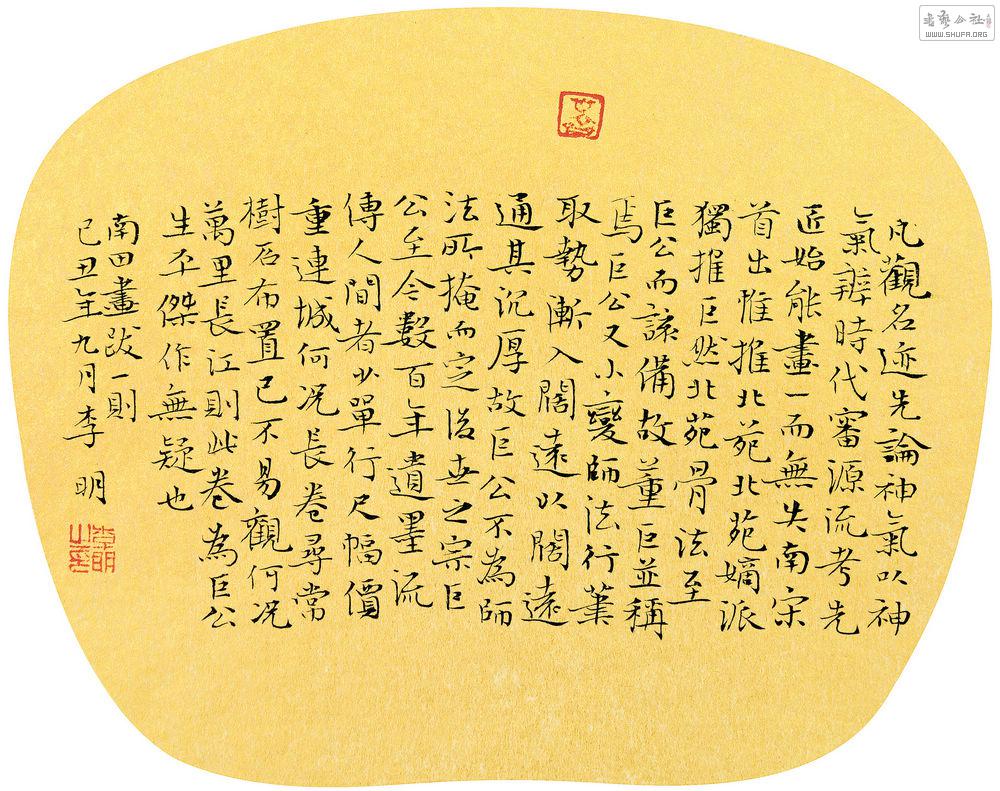 凡觀名迹先論神氣以神
氣辨時代審源流考先
匠始能畫一而無失南宋
首出惟推北苑北苑嫡派
獨推巨然北苑骨法至
巨公而該備故董巨並稱
焉巨公又小變師法行筆
取勢漸入闊遠以闊遠
通其沉厚故巨公不為師
法所掩而定後世之宗巨
公至今數百年遺墨流
傳人間者少單行尺幅價
重連城何况長卷尋常
樹石布置已不易觀何况
萬里長江則此卷為巨公
生平傑作無疑也
南田畫跋一則
己丑年九月李明
李明之印
書藝公社
WWW.SHUFA.ORG